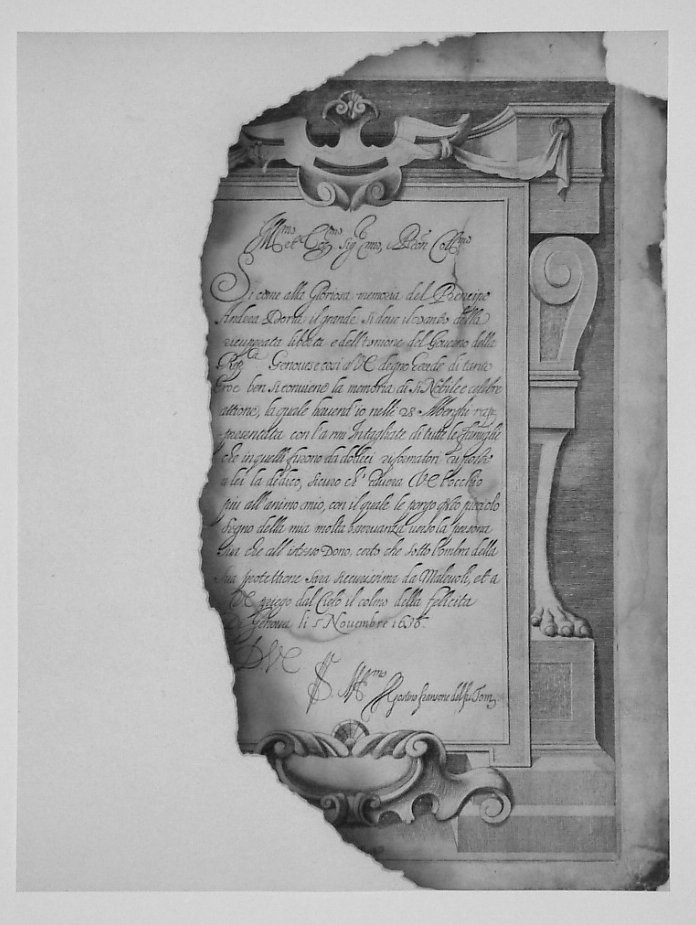 Ill.mo et Ecc.mo Sig.r mio, e Pdon Coll.mo
Si come alla Gloriosa memoria del Prencipe
Andrea Doria il grande si deve il vanto della
ricuperata libertà e dell'unione del Governo della
Rep.ca Genovese cosi a VE degno Erede di tanto
Eroe ben si conviene la memoria di si Nobile e celebre
attione, la quale havend'io nelle 28 Alberghi rap-
presentata con l'armi Intagliate di tutte le Famiglie
che in quelli furono da dodeci riformatori
a lei la dedico, sicuro ch' VE l'occhio
piu all'animo mio, con il quale le porgo questo picciolo
segno della mia molta verso la persona
sua che all'istesso Dono, certo che sotto l'ombra della
sua protettione sara sicurissima da Malevoli, et a
VE priego dal Cielo il colmo della felicita
Di Genova li 5 Novembre 1636.
D V E
Agostino Fransone del fu Tom.